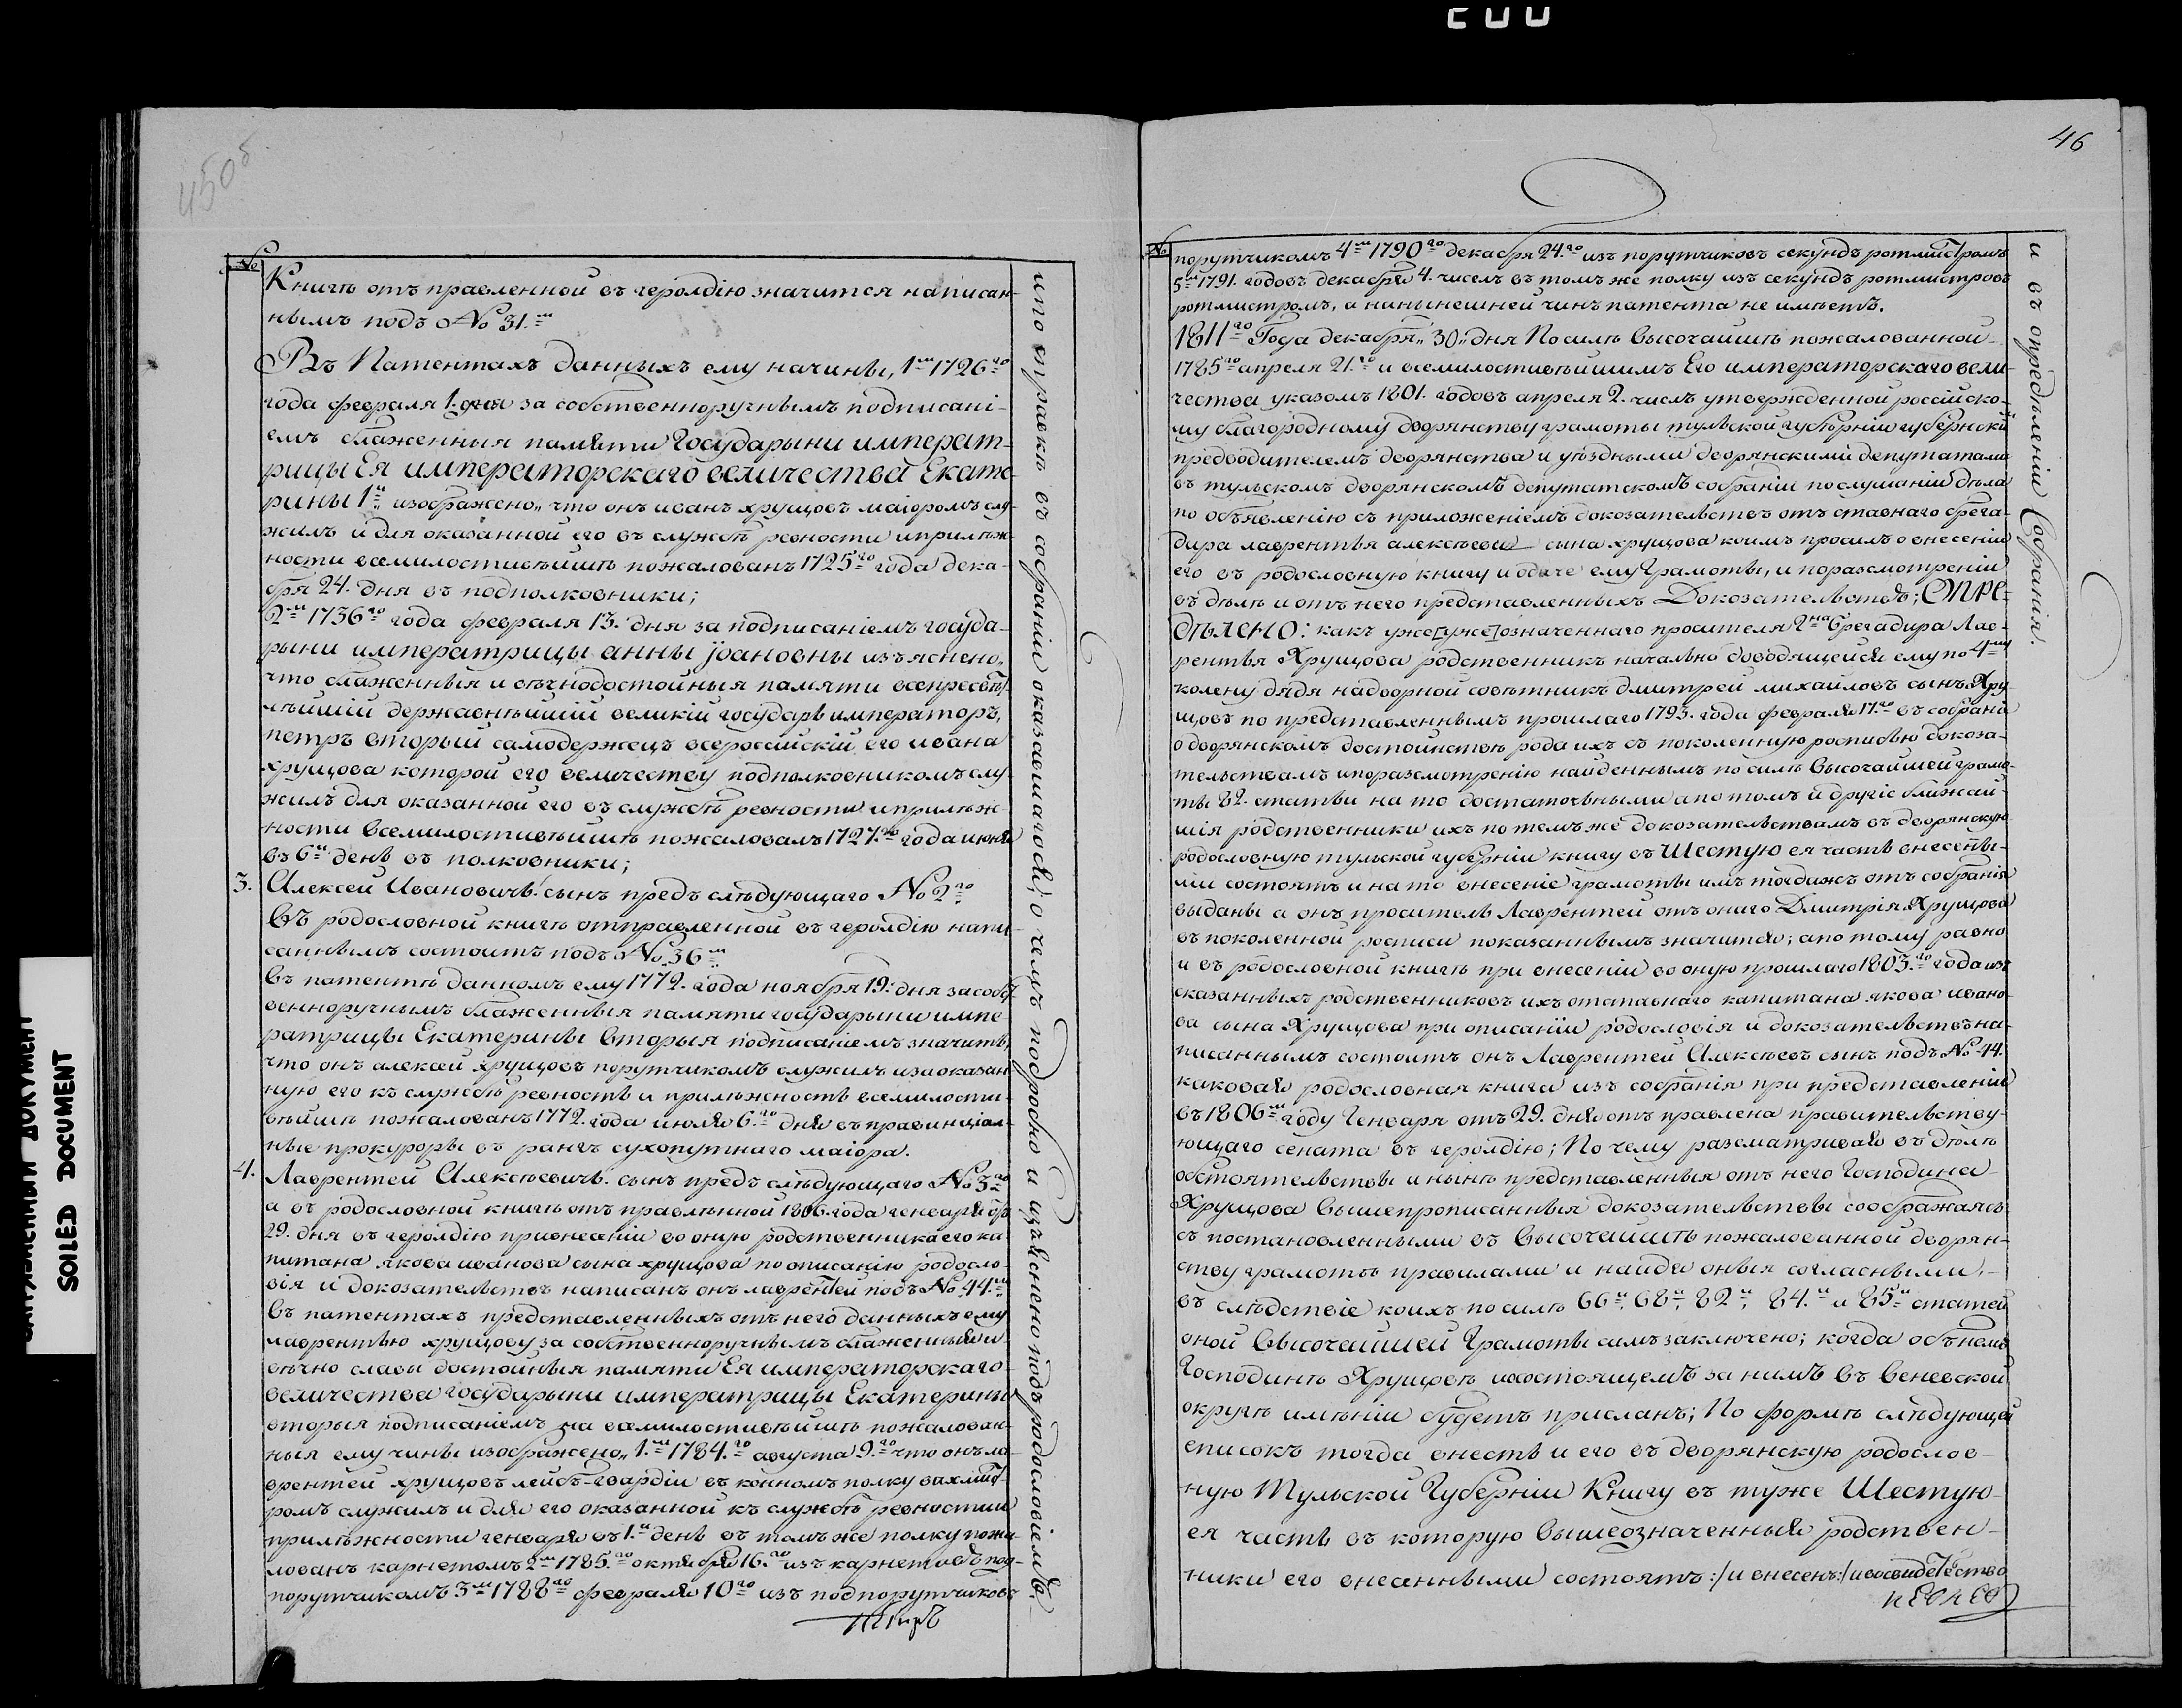 45об
№
Книгѣ отъ правленной въ герольдію значится написан-
нымъ подъ № 31.мъ
Въ Патентахъ данныхъ ему начины, 1мъ 1726го
года февраля 1. дня за собственноручнымъ подписані-
емъ блаженныя памяти Государыни императ-
рицы Ея императорскаго величества Екате-
рины 1й изображено„ что онъ иванъ хрущовъ маіоромъ слу-
жилъ и для оказанной его въ службѣ ревности и прилѣж-
ности всемилостивѣйшѣ пожалованъ 1725го года дека-
бря 24. дня въ подполковники;
2мъ 1736го года февраля 13. дня за подписаніемъ госуда-
рыни императрицы анны іоановны изъяснено„
что блаженныя и вѣчнодостойныя памяти всепресвѣт-
лѣйшій державнѣйшій великій государь императоръ,
петръ вторый самодержецъ всероссійскій его ивана
хрущова которой его величеству подполковникомъ слу-
жилъ для оказанной его въ службѣ ревности и прилѣж-
ности всемилостивѣйшѣ пожаловалъ 1727.го года июня
въ 6й день въ полковники;
3. Алексей Ивановичь. сынъ предъ слѣдующаго № 2го
Въ родословной книгѣ отправленной въ герольдію напи-
саннымъ состоитъ подъ № 36мъ
въ патентѣ данномъ ему 1772. года ноября 19. дня засобст-
венноручнымъ блаженныя памяти государыни импе
ратрицы Екатерины вторыя подписаніемъ значитъ,
что онъ алексей хрущовъ порутчикомъ служилъ изаоказан
ную его къ службѣ ревность и прилѣжность всемилости-
вѣйшѣ пожалованъ 1772. года июля 6.го дня въ правинціал-
ные прокуроры въ рангъ сухопутнаго маіора.
4. Лаврентей Алексѣевичь. сынъ предъ слѣдующаго № 3го
а въ родословной книгѣ отъ правленной 1806. года генваря
29. дня въ герольдію привнесеніи во оную родственника его ка-
питана якова иванова сына хрущова по описанію родосло-
вія и доказательствъ написанъ онъ лаврентей подъ № 44.мъ
въ патентахъ представленныхъ отъ него данныхъ ему
лаврентью хрущову за собственноручнымъ блаженныя и
вѣчно славы достойныя памяти Ея императорскаго
величества государыни императрицы Екатерины
вторыя подписаніемъ на всемилостивѣйшѣ пожалован-
ныя ему чины изображено„ 1.мъ 1784.го августа 9.го что онъ ла-
врентей хрущовъ лейбъ-гвардіи въ конномъ полку вахмист-
ромъ служилъ и для его оказанной къ службѣ ревности и
прилѣжности генваря въ 1.й день въ томъ же полку пожа-
лованъ карнетомъ 2мъ 1785.го октября 16.го изъ карнетовъ под-
порутчикомъ 3мъ 1788го февраля 10го изъ подпорутчиковъ
что отправкѣ въ собраніи оказавшагося; о чемъ подробно и изъяснено подъ родословіемъ.
46
№
порутчикомъ 4мъ 1790го декабря 24.го изъ порутчиковъ секундъ ротмистромъ
5мъ 1791. годовъ декабря 4. чиселъ въ томъ же полку изъ секундъ ротмистровъ
ротмистромъ, а нанынешней чинъ патента не имѣетъ.
1811го Года декабря„ 30„ дня По силѣ Высочайшѣ пожалованной
1785го апреля 21.го и всемилостивѣйшимъ Его императорскаго вели-
чества указомъ 1801. годовъ апреля 2. числъ утвержденной россійско-
му благородному дворянству грамоты тульской губерніи губернскій
предводителемъ дворянства и уѣздными дворянскими депутатами
въ тульскомъ дворянскомъ депутатскомъ собраніи послушаніи дѣла
по объявленію съ приложеніемъ доказательствъ отъ ставнаго брега-
дира лаврентья алексѣева сына хрущова коимъ просилъ о внесеніи
его въ родословную книгу и одаче ему Грамоты, и поразсмотреніи
въ дѣлѣ и отъ него представленныхъ Доказательствъ; ОПРЕ-
ДѢЛЕНО: какъ уже [уже] означеннаго просителя 2на брегадира Лав-
рентья Хрущова родственникъ начально доводящейся ему по 4му
колену дядя надворной совѣтникъ дмитрей михайловъ сынъ Хру-
щовъ по представленнымъ прошлаго 1793. года февраля 17.го въ собраніе
о дворянскомъ достоинствѣ рода ихъ съ поколенную росписью доказа-
тельствамъ ипоразсмотренію найденнымъ по силѣ Высочайшей грамо-
ты 82. статьи на то достаточными а по томъ и другіе ближай-
шія родственники ихъ по темъ же доказательствамъ въ дворянскую
родословную тульской губерніи книгу въ Шестую ея часть внесены-
ми состоятъ и на то внесеніе грамоты имъ тогдажъ отъ собранія
выданы а онъ проситель Лаврентей отъ онаго Дмитрія Хрущова
въ поколенной росписи показаннымъ значится; а по тому равно
и въ родословной книгѣ при внесеніи во оную прошлаго 1803.го года изъ
сказанныхъ родственниковъ ихъ отставнаго капитана якова ивано-
ва сына Хрущова при описаніи родословія и доказательствъ на-
писаннымъ состоитъ онъ Лаврентей Алексѣевъ сынъ подъ № 44.
каковая родословная книга изъ собранія при представленіи
въ 1806мъ году Генваря отъ 29. дня отъ правлена правительству-
ющаго сената въ герольдію; По чему разсматривая въ дѣлѣ
обстоятельствы и нынѣ представленныя отъ него Господина
Хрущова Вышепрописанныя доказательствы соображаясь
съ постановленными въ Высочайшѣ пожалованной дворян-
ству грамотѣ правилами и найдя оныя согласными,
въ слѣдствіе коихъ по силѣ 66й, 68й, 82й, 84.й и 85й статей
оной Высочайшей Грамоты симъ заключено; когда объ немъ
Господинѣ Хрущовѣ исостоящемъ за нимъ въ Веневской
округѣ имѣніи будетъ присланъ; По формѣ слѣдующей
списокъ тогда внесть и его въ дворянскую родослов-
ную Тульской Губерніи Книгу въ туже Шестую
ея часть въ которую вышеозначенныя родствен-
ники его внесенными состоятъ :/ и внесенъ :/ и
и въ опредѣленіи Собранія.
SOILED DOCUMENT